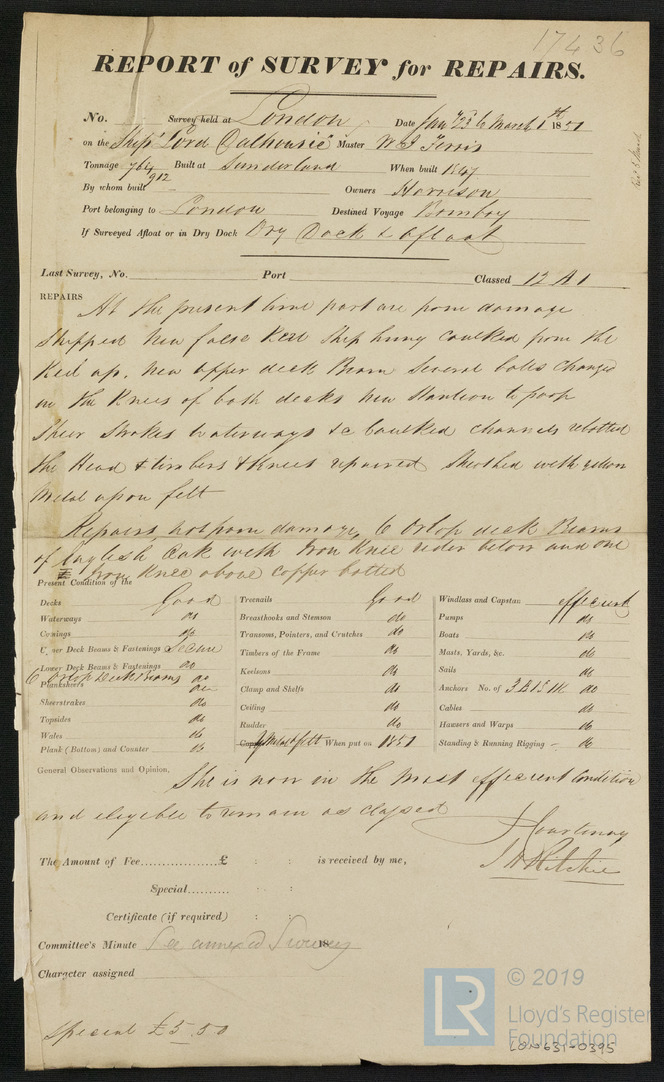 17436
REPORT of SURVEY for REPAIRS.
No. Survey held at London Date Jany 23 to March 1st 1851
on the Ship Lord Dalhousie Master W Ferris
Tonnage 764 Built at Sunderland When built 1847
912
By whom built Owners Harrison
Port belonging to London Destined Voyage Bombay
If Surveyed Afloat or in Dry Dock Dry Dock & afloat
Last Survey, No. Port Classed 12 A 1
REPAIRS At the present time part are from damage
Shipped New false Keel Ship hung caulked from the
Keel up, New upper deck Beam Several bolts changed
in the Knees of both decks New Stantion to poop
Sheer Strakes Waterways &c Caulked channels rebolted
the Head & timbers & Knees repaired Sheathed with yellow
Metal upon felt
Repairs not from damage, 6 Orlop deck Beams
of English Oak with Iron Knee rider below and one
Iron Knee above copper bolted
Present Condition of the
Decks Good
Waterways do
Comings do
Upper Deck Beams & Fastenings Secure
Lower Deck Beams & Fastenings do
6 Orlop Deck Beams do
Planksheers do
Sheerstrakes do
Topsides do
Wales do
Plank (Bottom) and Counter do
Treenails Good
Breasthooks and Stemson do
Transoms, Pointers, and Crutches do
Timbers of the Frame do
Keelsons do
Clamp and Shelfs do
Ceiling do
Rudder do
Copper Y Metal & felt When put on 1851
Windlass and Capstan efficient
Pumps do
Boats do
Masts, Yards, &c. do
Sails do
Anchors No. of 3 B 1 S 1 K do
Cables do
Hawsers and Warps do
Standing & Running Rigging do
General Observations and Opinion, She is now in the Most efficient Condition
and eligible to remain as classed
J Courtenay
J H Ritchie
The Amount of Fee................£ : : is received by me,
Special.......... : :
Certificate (if required) : :
Committee's Minute See annexed Survey 18
Character assigned
Special £5.50
LR © 2019
Lloyd's Register
Foundation
LON631-0395